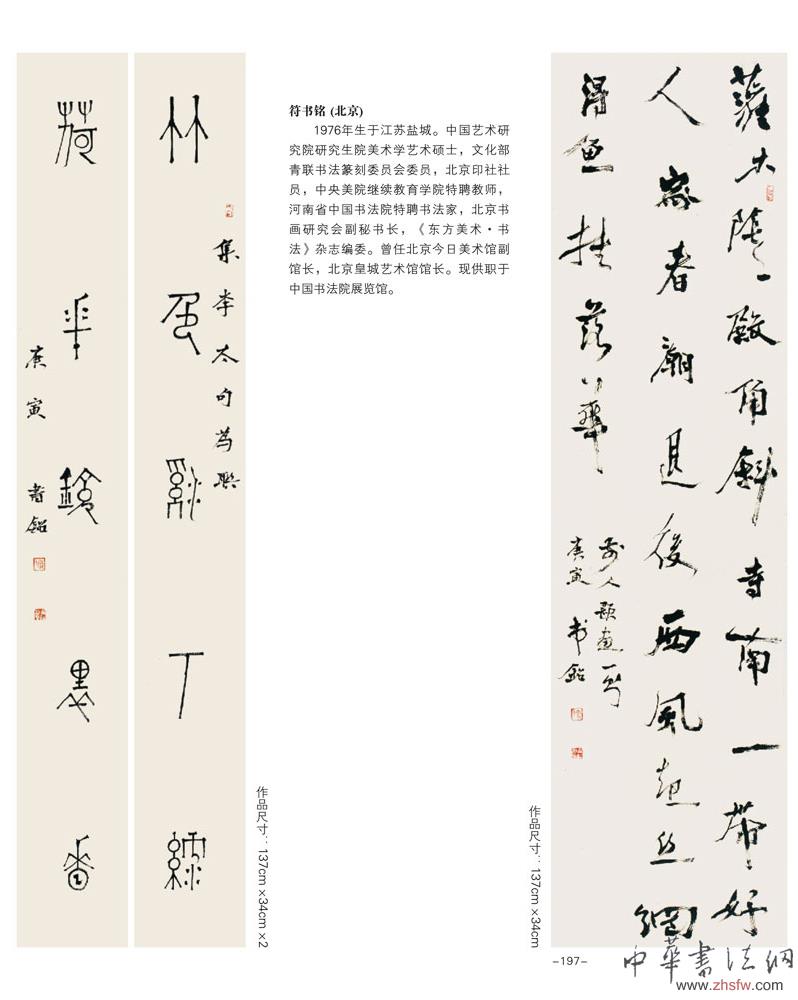 竹色谿下綠
集李太句為聯
荷華鏡裏香
庚寅 書銘
符书铭 (北京)
1976年生于江苏盐城。中国艺术研
究院研究生院美术学艺术硕士，文化部
青联书法篆刻委员会委员，北京印社社
员，中央美院继续教育学院特聘教师，
河南省中国书法院特聘书法家，北京书
画研究会副秘书长，《东方美术·书
法》杂志编委。曾任北京今日美术馆副
馆长，北京皇城艺术馆馆长。现供职于
中国书法院展览馆。
作品尺寸：137cm×34cm×2
木陰〻殿角斜寺南一帶好
人家春潮退後西風起丝網
得魚挂落華
前人題畫一首
庚寅 书銘
作品尺寸：137cm×34cm
-197-
中華書法網
www.zhsfw.com